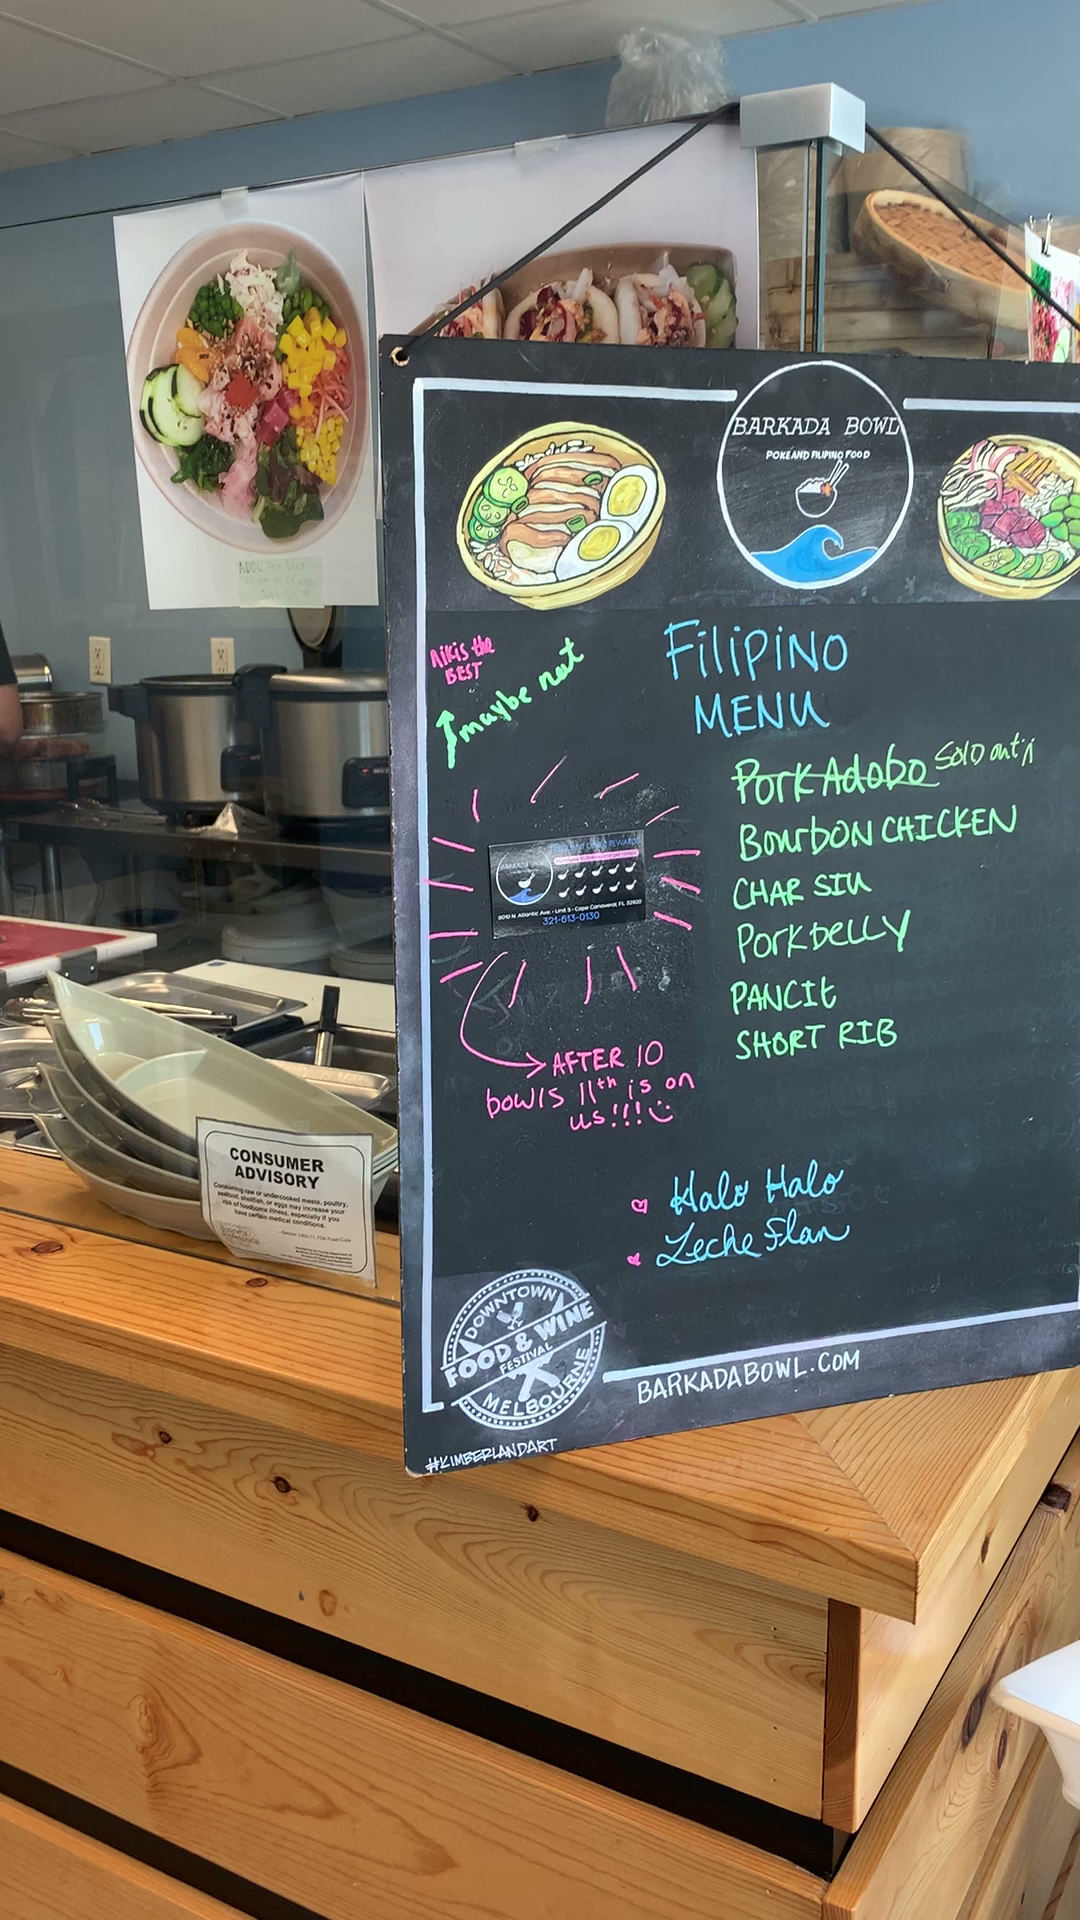 BARKADA BOWL
POKE AND FILIPINO FOOD
Filipino
MENU
Nikis the
BEST
maybe not
Pork Adobo Sold out :(
Bourbon CHICKEN
CHAR SIU
Pork belly
PANCIt
SHORT RIB
BARKADA
8010 N. Atlantic Ave. • Unit 5 • Cape Canaveral, FL 32920
321-613-0130
AFTER 10
bowls 11th is on
us!!!
Halo Halo
Leche Flan
CONSUMER
ADVISORY
Consuming raw or undercooked meats, poultry,
seafood, shellfish, or eggs may increase your
risk of foodborne illness, especially if you
have certain medical conditions.
DOWNTOWN
FOOD & WINE
FESTIVAL
MELBOURNE
BARKADABOWL.COM
#KIMBERLANDART